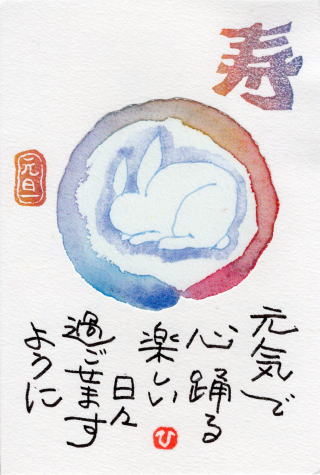 寿
元旦
元気で
心踊る
楽しい
日々
過ごせます
ように
ひ